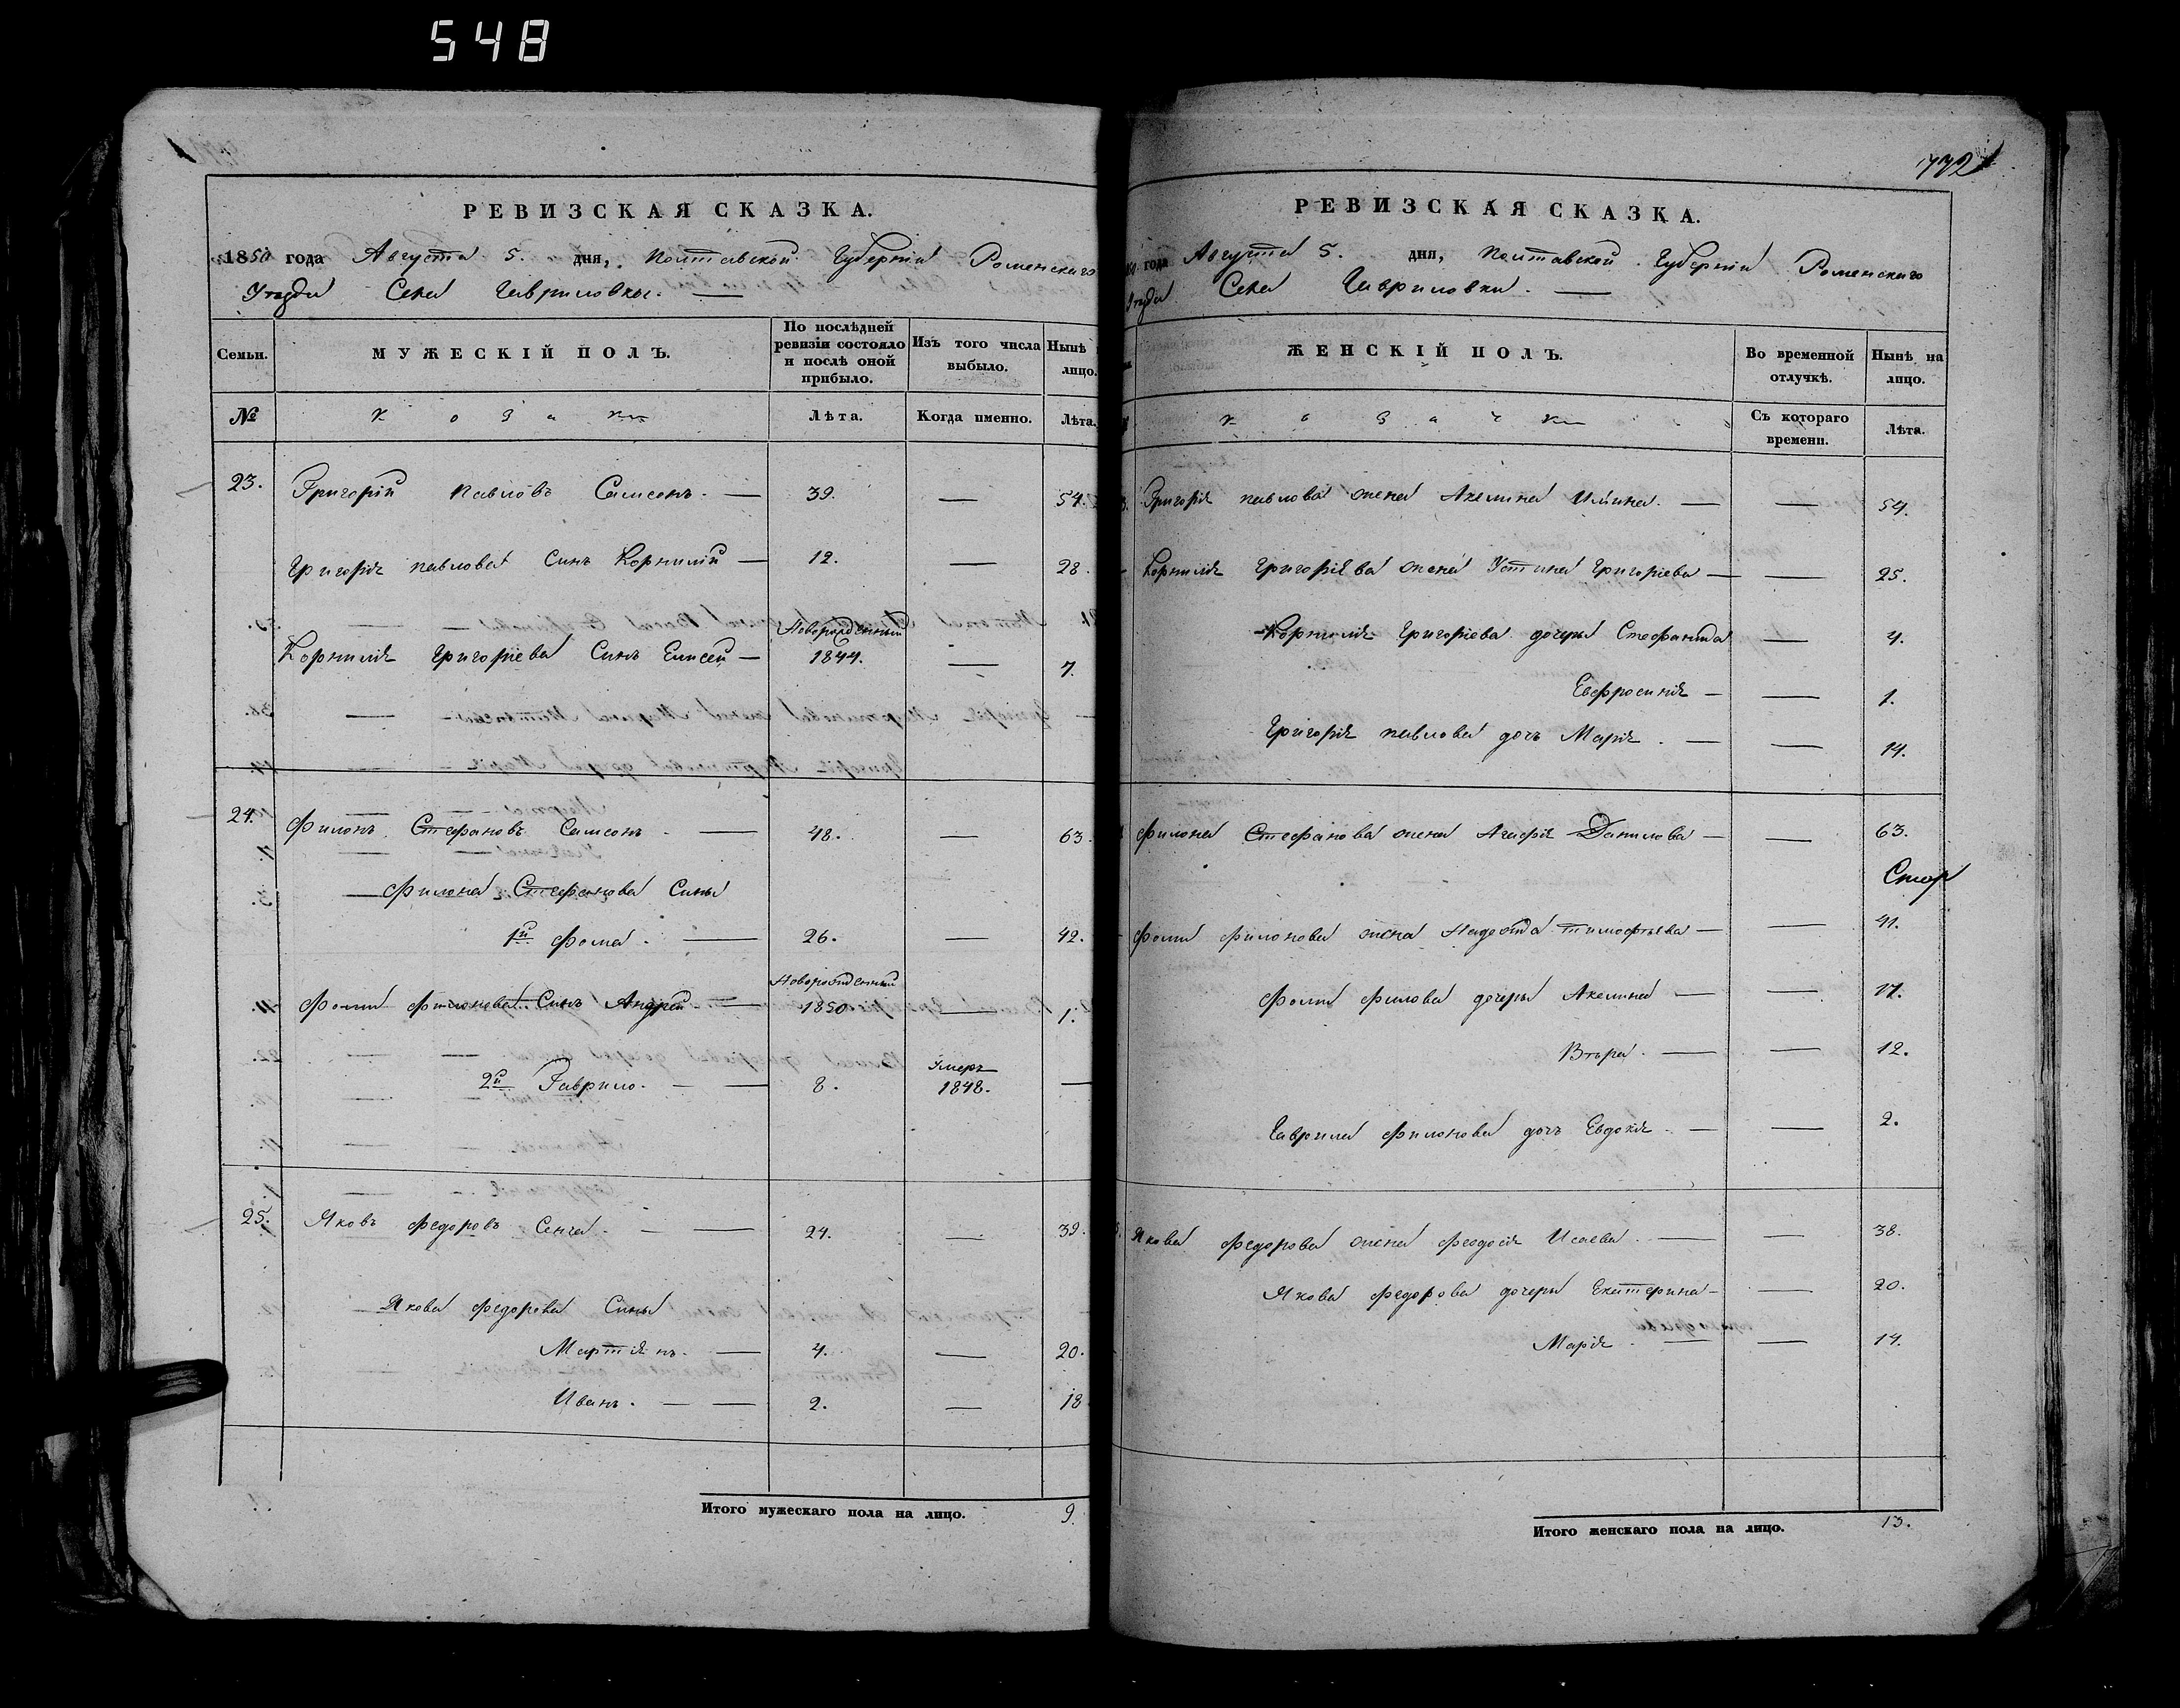 548
РЕВИЗСКАЯ СКАЗКА.
1850 года Августа 5. дня, Полтавской Губерніи Роменскаго
Уѣзда Села Гавриловки. —
Семьи.
МУЖЕСКІЙ ПОЛЪ.
По послѣдней ревизіи состояло и послѣ оной прибыло.
Изъ того числа выбыло.
Нынѣ лицо.
№
Козаки
Лѣта.
Когда именно.
Лѣта.
23. Григорій Павловъ Самсонъ. — 39. — 54.
Григорія Павлова Синъ Корнилій — 12. — 28.
Новорожденный
Корнилія Григоріева Синъ Елисей — 1844. — 7.
24. Филонъ Стефановъ Самсонъ — 48. — 63.
Филона Стефанова Сини
1й Фома. — 26. — 42.
Новорожденный
Фоми Филонова Синъ Андрей — 1850 — 1.
2й Гаврило. — 8. Умеръ 1848. —
25. Яковъ Федоровъ Сенча. — 24. — 39.
Якова Федорова Сини
Мартінъ. — 4. — 20.
Иванъ. — 2. — 18
Итого мужескаго пола на лицо. 9.
772
РЕВИЗСКАЯ СКАЗКА.
года Августа 5. дня, Полтавской Губерніи Роменскаго
Уѣзда Села Гавриловки. —
ЖЕНСКІЙ ПОЛЪ.
Во временной отлучкѣ.
Нынѣ на лицо.
Козачки
Съ котораго времени.
Лѣта.
Григорія Павлова жена Акелина Ильина. — — 54.
Корнилія Григоріева жена Устина Григоріева — — 25.
Корнилія Григоріева дочери Стефанида — 4.
Евфросинія — — 1.
Григорія Павлова дочь Марія. — — 14.
Филона Стефанова жена Агафія Данилова — — 63.
Фоми Филонова жена Тимофѣева — — 41.
Фоми Филова дочери Акелина — — 17.
Вѣра. — — 12.
Гаврила Филонова дочь Евдокія — — 2.
Якова Федорова жена Феодосія Исаева. — — 38.
Якова Федорова дочери Екатерина — — 20.
Марія. — — 14.
Итого женскаго пола на лицо. 13.